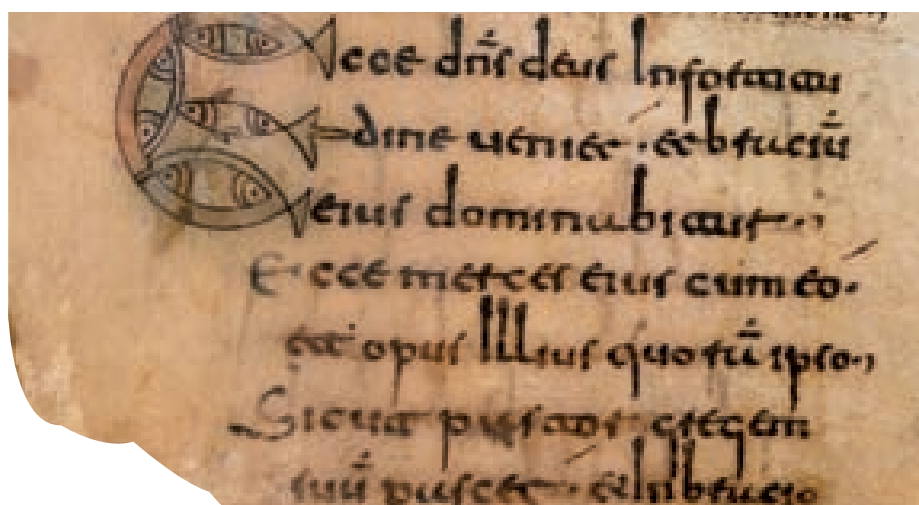 Ecce dn̄s deus Infortitu
dine ueniet · et braciū
eius dominabitur ·
Ecce merces eius cum eo ·
et opus Illius quorā ipso ·
Sicut pastor gregem
suū pascet · et In bracio